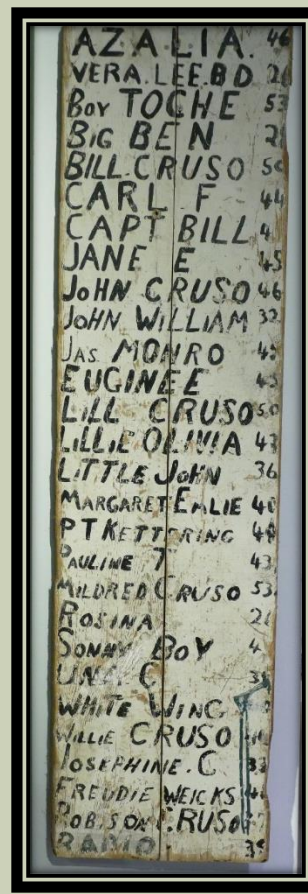 AZALIA. 46
VERA.LEE.B D
Boy TOCHE 53
BiG BEN
BILL.CRUSO
CARL F 44
CAPT BILL
JANE E 45
JoHN CRUSO 46
JoHN WiLLIAM 32
JAS MONRO
EUGINEE
LiLL CRUSO 50
LiLLiE OLIVIA 43
LiTTLE JoHN 36
MARGARET EMLIE 40
PTKETTERING
PAULINE T 43
MILDRED CRUSO 53
ROSINA
SONNY BoY
UNA C
WHiTE WiNG
WiLLiE CRUSO
JOSEPHINE.C
FREUDIE WEICKS
ROBISON CRUSO
RADIO